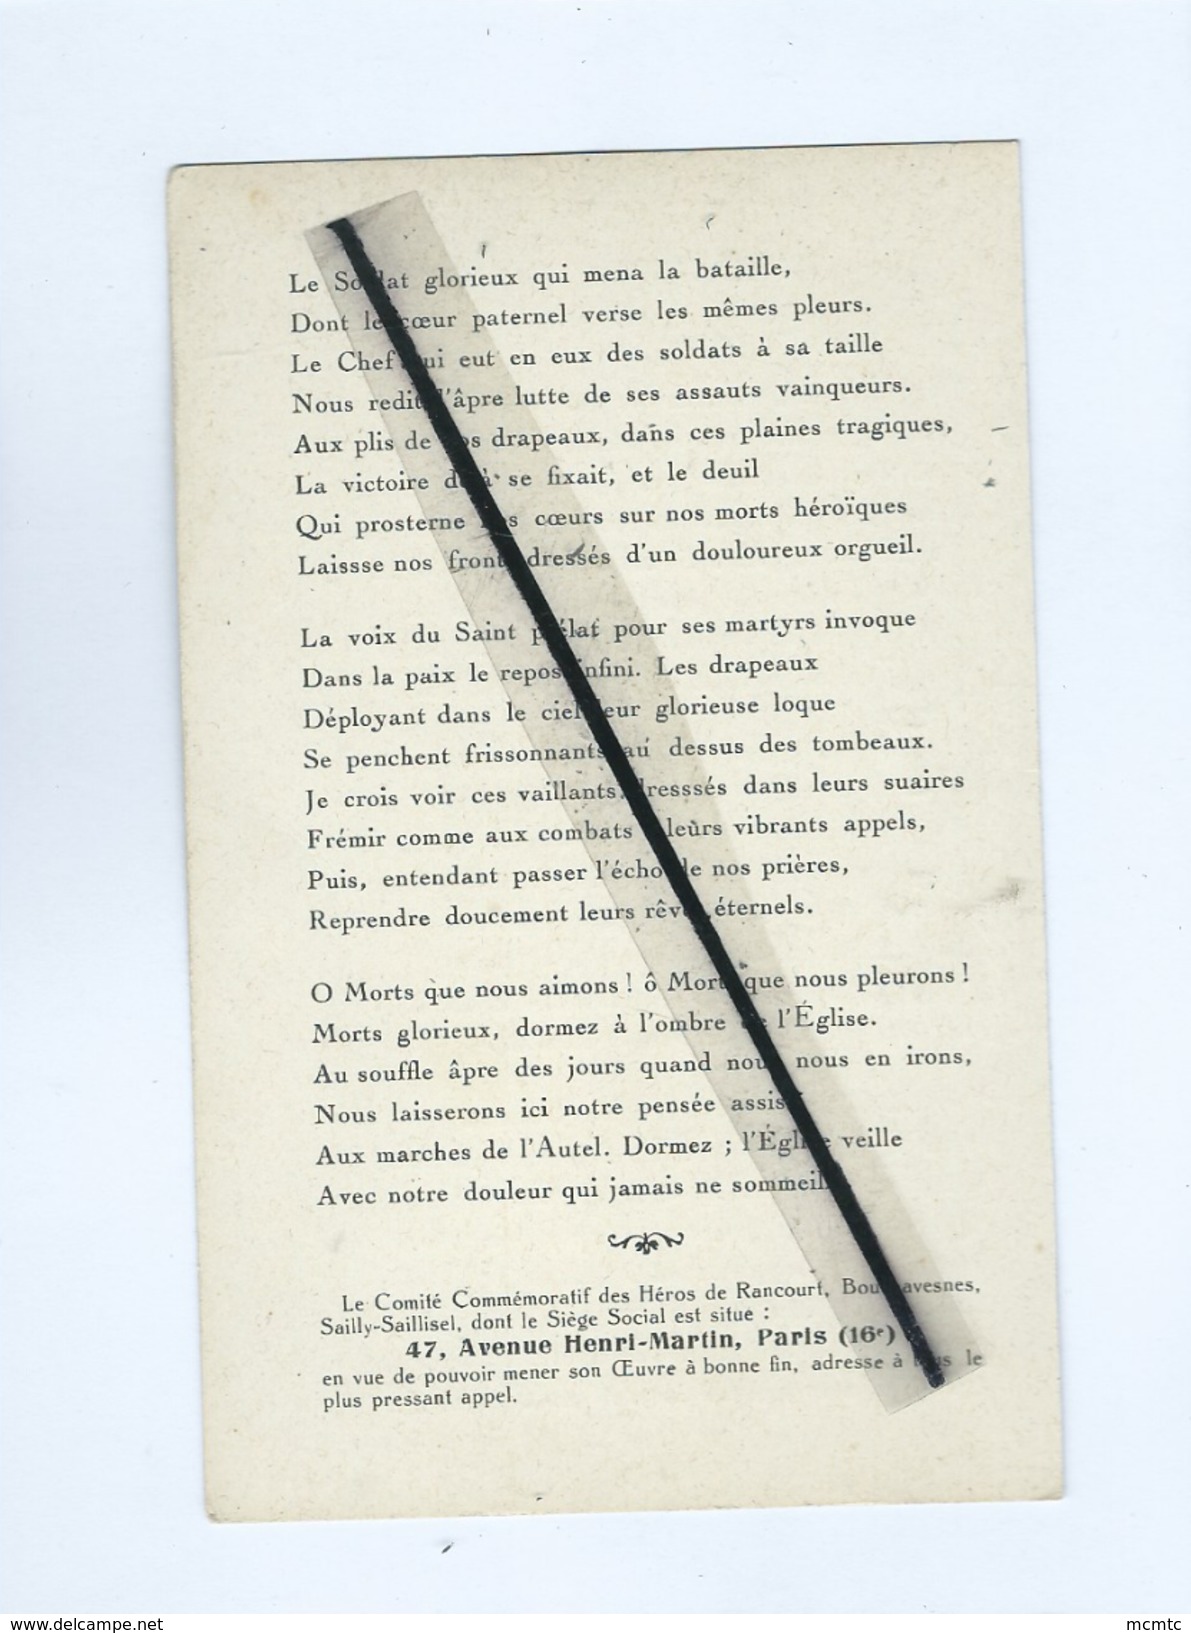 Le Soldat glorieux qui mena la bataille,
Dont le cœur paternel verse les mêmes pleurs.
Le Chef qui eut en eux des soldats à sa taille
Nous redit l'âpre lutte de ses assauts vainqueurs.
Aux plis de nos drapeaux, dans ces plaines tragiques,
La victoire déjà se fixait, et le deuil
Qui prosterne nos cœurs sur nos morts héroïques
Laissse nos fronts dressés d'un douloureux orgueil.
La voix du Saint prélat pour ses martyrs invoque
Dans la paix le repos infini. Les drapeaux
Déployant dans le ciel leur glorieuse loque
Se penchent frissonnants au dessus des tombeaux.
Je crois voir ces vaillants dresssés dans leurs suaires
Frémir comme aux combats à leurs vibrants appels,
Puis, entendant passer l'écho de nos prières,
Reprendre doucement leurs rêves éternels.
O Morts que nous aimons ! ô Morts que nous pleurons !
Morts glorieux, dormez à l'ombre de l'Église.
Au souffle âpre des jours quand nous nous en irons,
Nous laisserons ici notre pensée assise
Aux marches de l'Autel. Dormez ; l'Église veille
Avec notre douleur qui jamais ne sommeille.
Le Comité Commémoratif des Héros de Rancourt, Bouchavesnes,
Sailly-Saillisel, dont le Siège Social est situe :
47, Avenue Henri-Martin, Paris (16e)
en vue de pouvoir mener son Œuvre à bonne fin, adresse à tous le
plus pressant appel.
www.delcampe.net
mcmtc